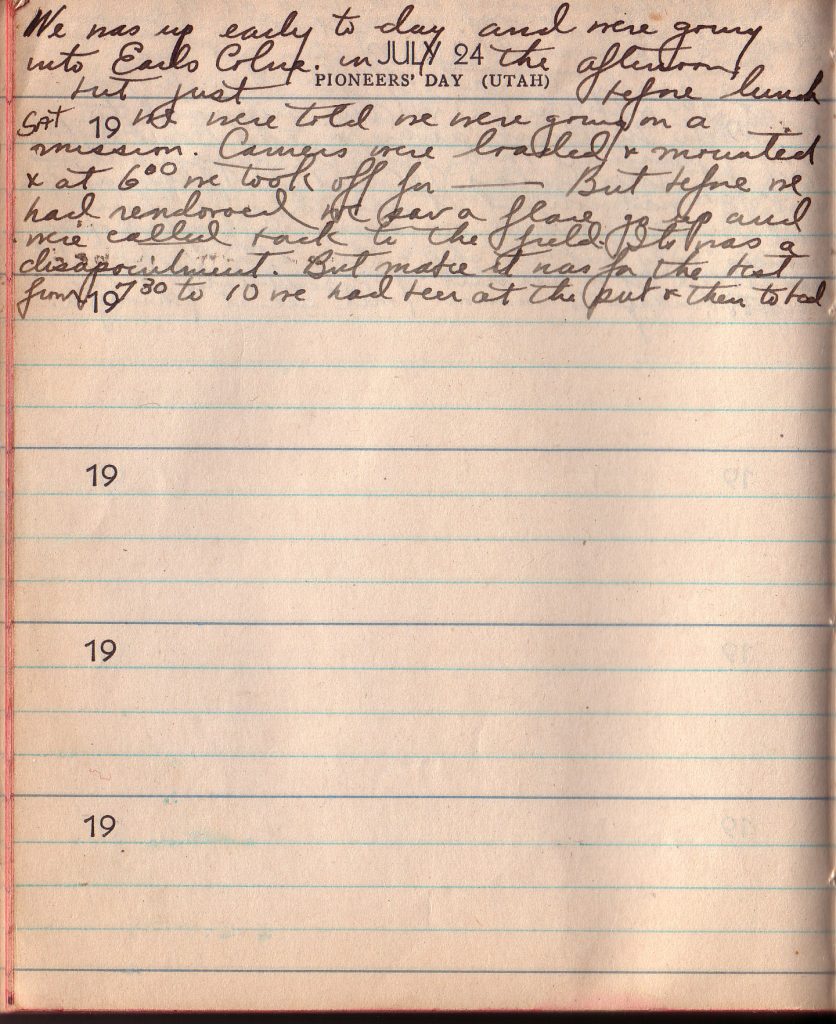 We was up early to day and were going
into Earls Colne. in JULY 24 the afternoon,
PIONEERS' DAY (UTAH)
but just before lunch
SAT 19 we were told we were going on a
mission. Camers were loaded & mounted
& at 6⁰⁰ we took off for —— But before we
had rendovoed we saw a flare go up and
were called back to the field. It was a
disapointment. But maybe it was for the best
from 19 7³⁰ to 10 we had beer at the pub & then to bed
19
19
19